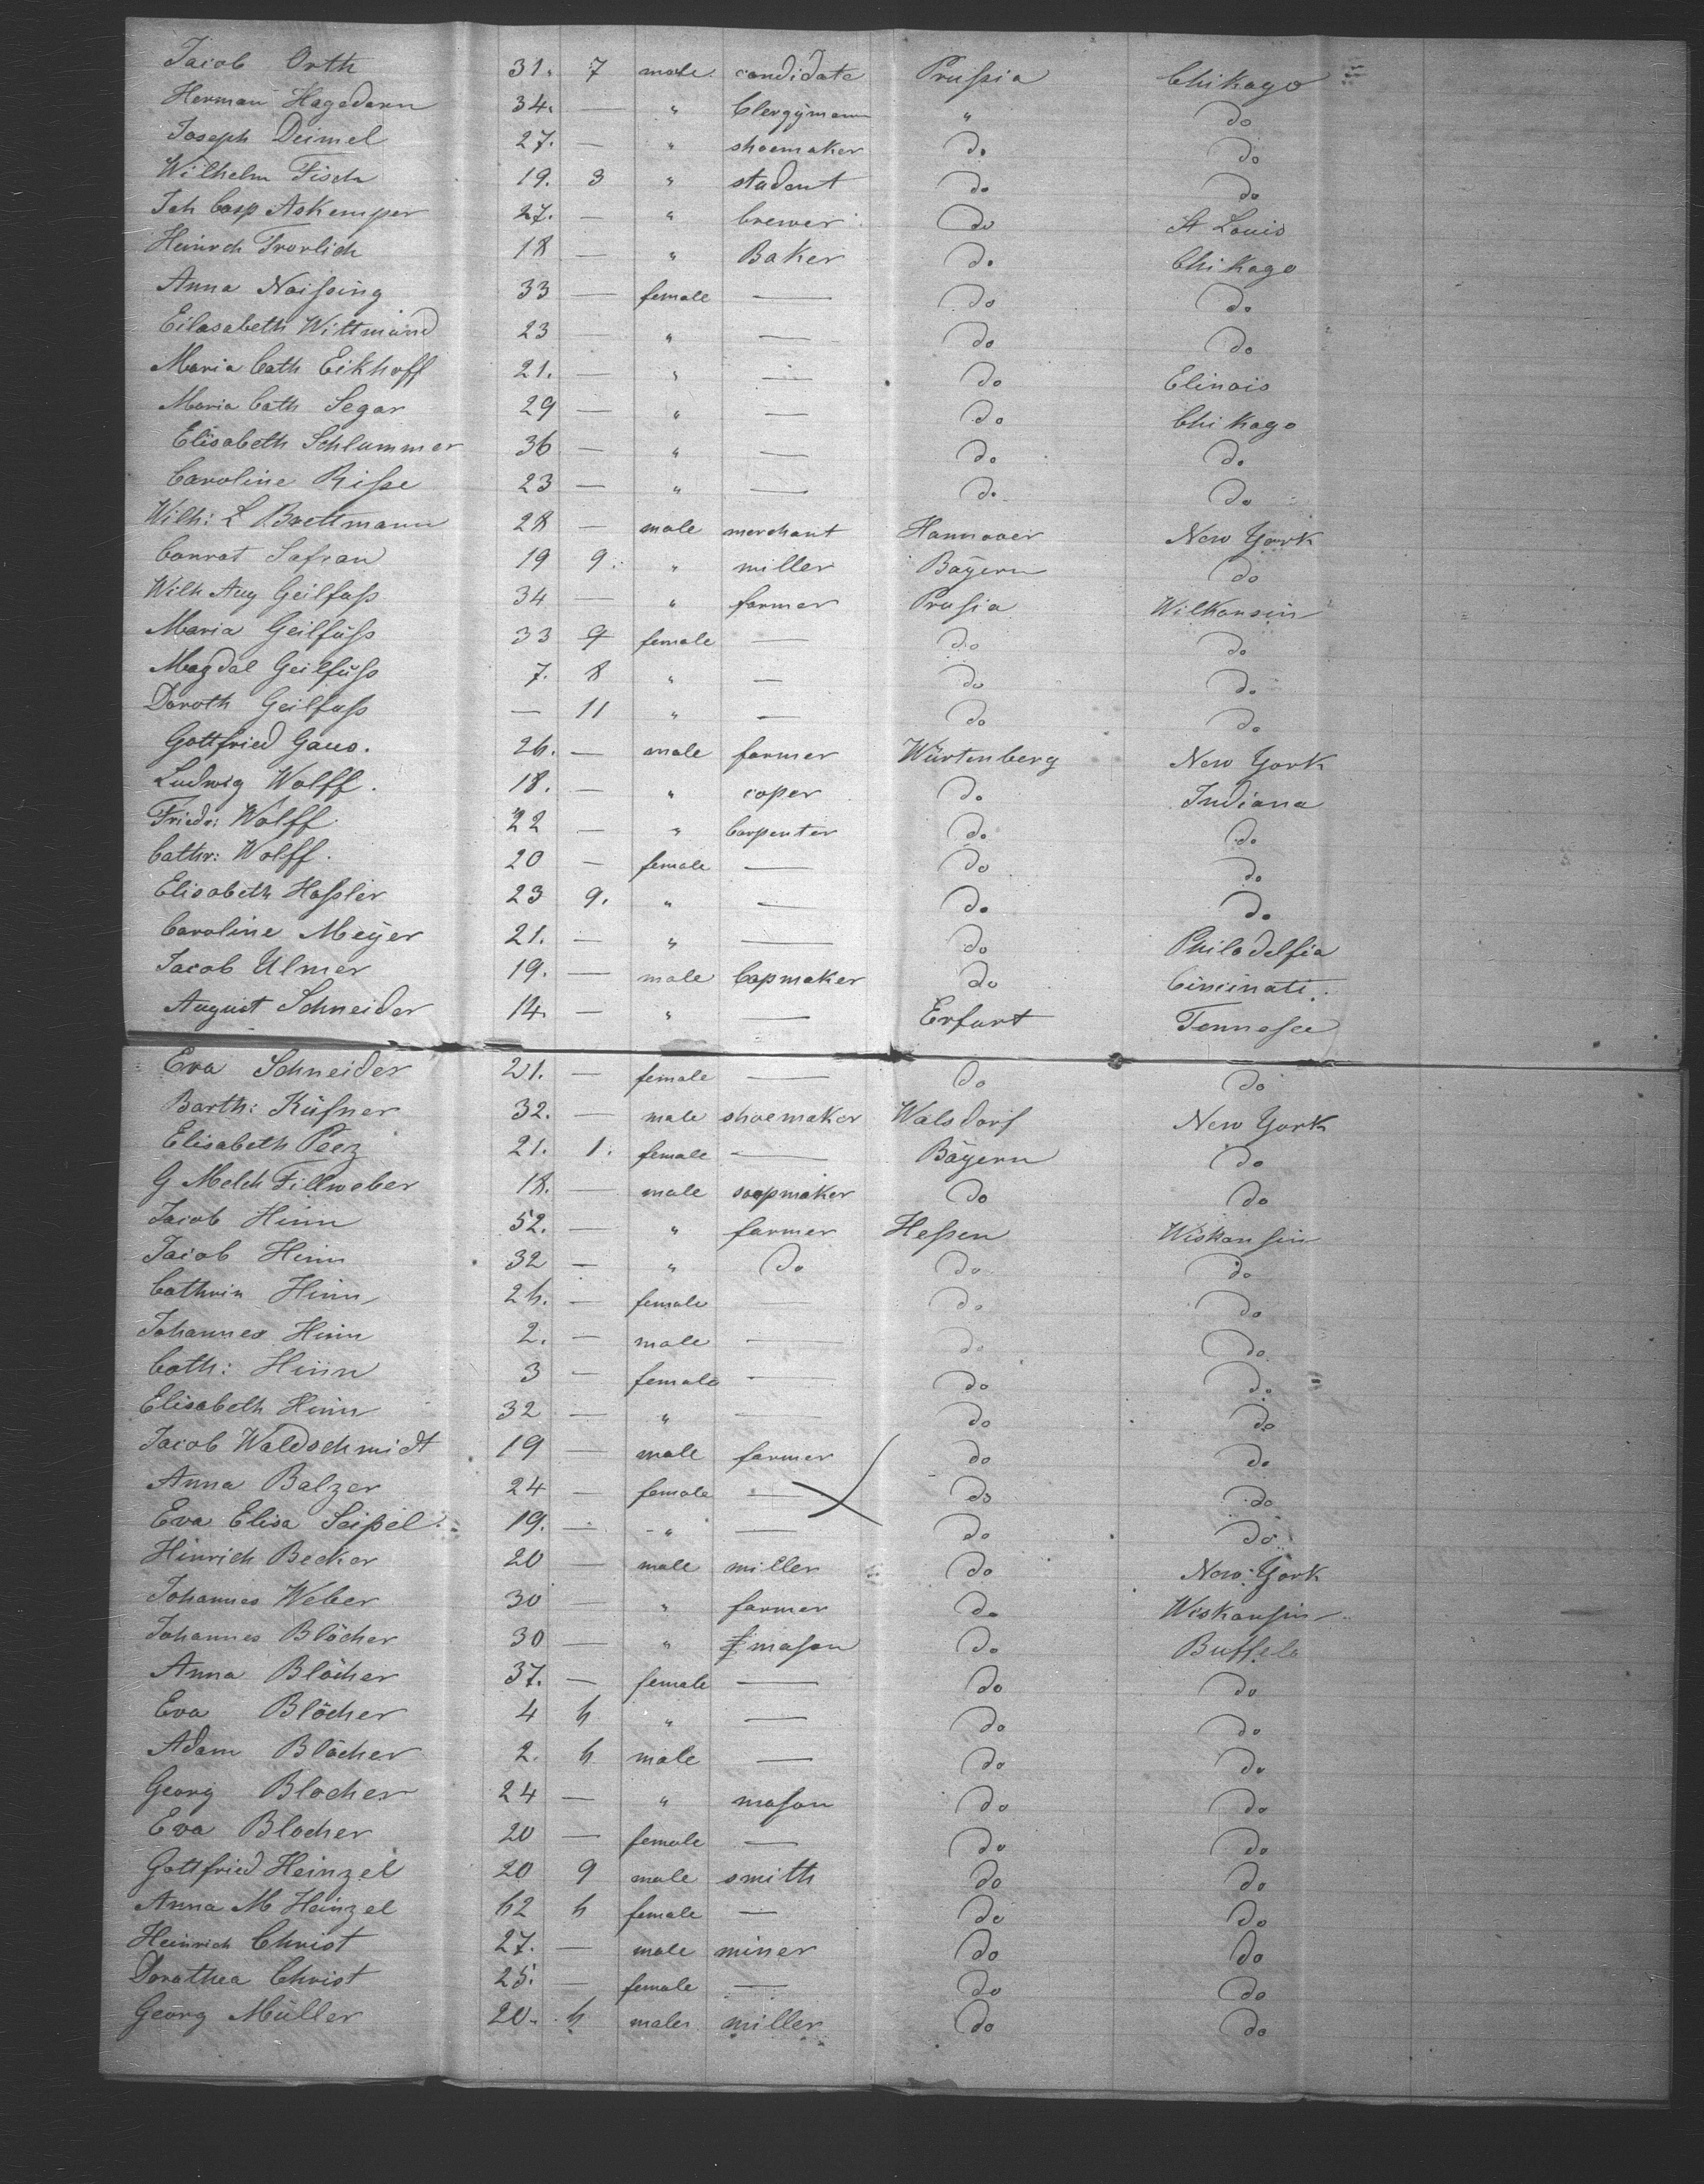 Jacob Orth 31. 7 male candidate Prussia Chikago
Herman Hagedorn 34. — " Clergÿmann " do
Joseph Deimel 27. — " shoemaker do do
Wilhelm Fisch 19. 3 " student do do
Joh Casp Askemper 27. — " brewer do St Louis
Heinrch Frorlich 18 — " Baker do Chikago
Anna Noissing 33 — female — do do
Eilasabeth Wittmünd 23 — " — do do
Maria Cath Eikhoff 21. — " — do Elinois
Maria Cath Segar 29 — " — do Chikago
Elisabeth Schlummer 36 — " — do do
Caroline Risse 23 — " — do do
Wilh: L Boettmann 28 — male merchant Hannover New York
Conrat Safran 19 9. " miller Baÿern do
Wilh Aug Geilfuss 34 — " farmer Prusia Wilkonsin
Maria Geilfuss 33 9 female — do do
Magdal Geilfuss 7. 8 " — do do
Doroth Geilfuss — 11 " — do do
Gottfried Gaus. 26. — male farmer Würtenberg New York
Ludwig Wolff. 18. — " coper do Indiana
Friedr: Wolff. 22 — " Carpenter do do
Cathr: Wolff. 20 — female — do do
Elisabeth Hassler 23 9. " — do do
Caroline Meÿer 21. — " — do Philadelfia
Jacob Ulmer 19. — male Capmaker do Cincinati.
August Schneider 14. — " — Erfurt Tennesee
Eva Schneider 21. — female — do do
Barth: Küfner 32. — male shoemaker Walsdorf New York
Elisabeth Peez 21. 1. female — Baÿern do
G Melch Fillweber 18. — male soapmaker do do
Jacob Hinn 52. — " farmer Hessen Wiskonsin
Jacob Hinn 32 — " do do do
Cathrin Hinn 26. — female — do do
Johannes Hinn 2. — male — do do
Cath: Hinn 3 — female — do do
Elisabeth Hinn 32 — " — do do
Jacob Waldschmidt 19 — male farmer do do
Anna Balzer 24 — female — do do
Eva Elisa Seipel 19. — " — do do
Hinrich Becker 20 — male miller do New York
Johannes Weber 30 — " farmer do Wiskonsin
Johannes Blöcher 30 — " mason do Buffelo
Anna Blöcher 37. — female — do do
Eva Blöcher 4 6 " — do do
Adam Blöcher 2. 6 male — do do
Georg Blocher 24 — " mason do do
Eva Blocher 20 — female — do do
Gottfried Heinzel 20 9 male smith do do
Anna M Heinzel 62 6 female — do do
Heinrich Christ 27. — male miner do do
Dorathea Christ 25. — female — do do
Georg Müller 20. 6 male miller do do